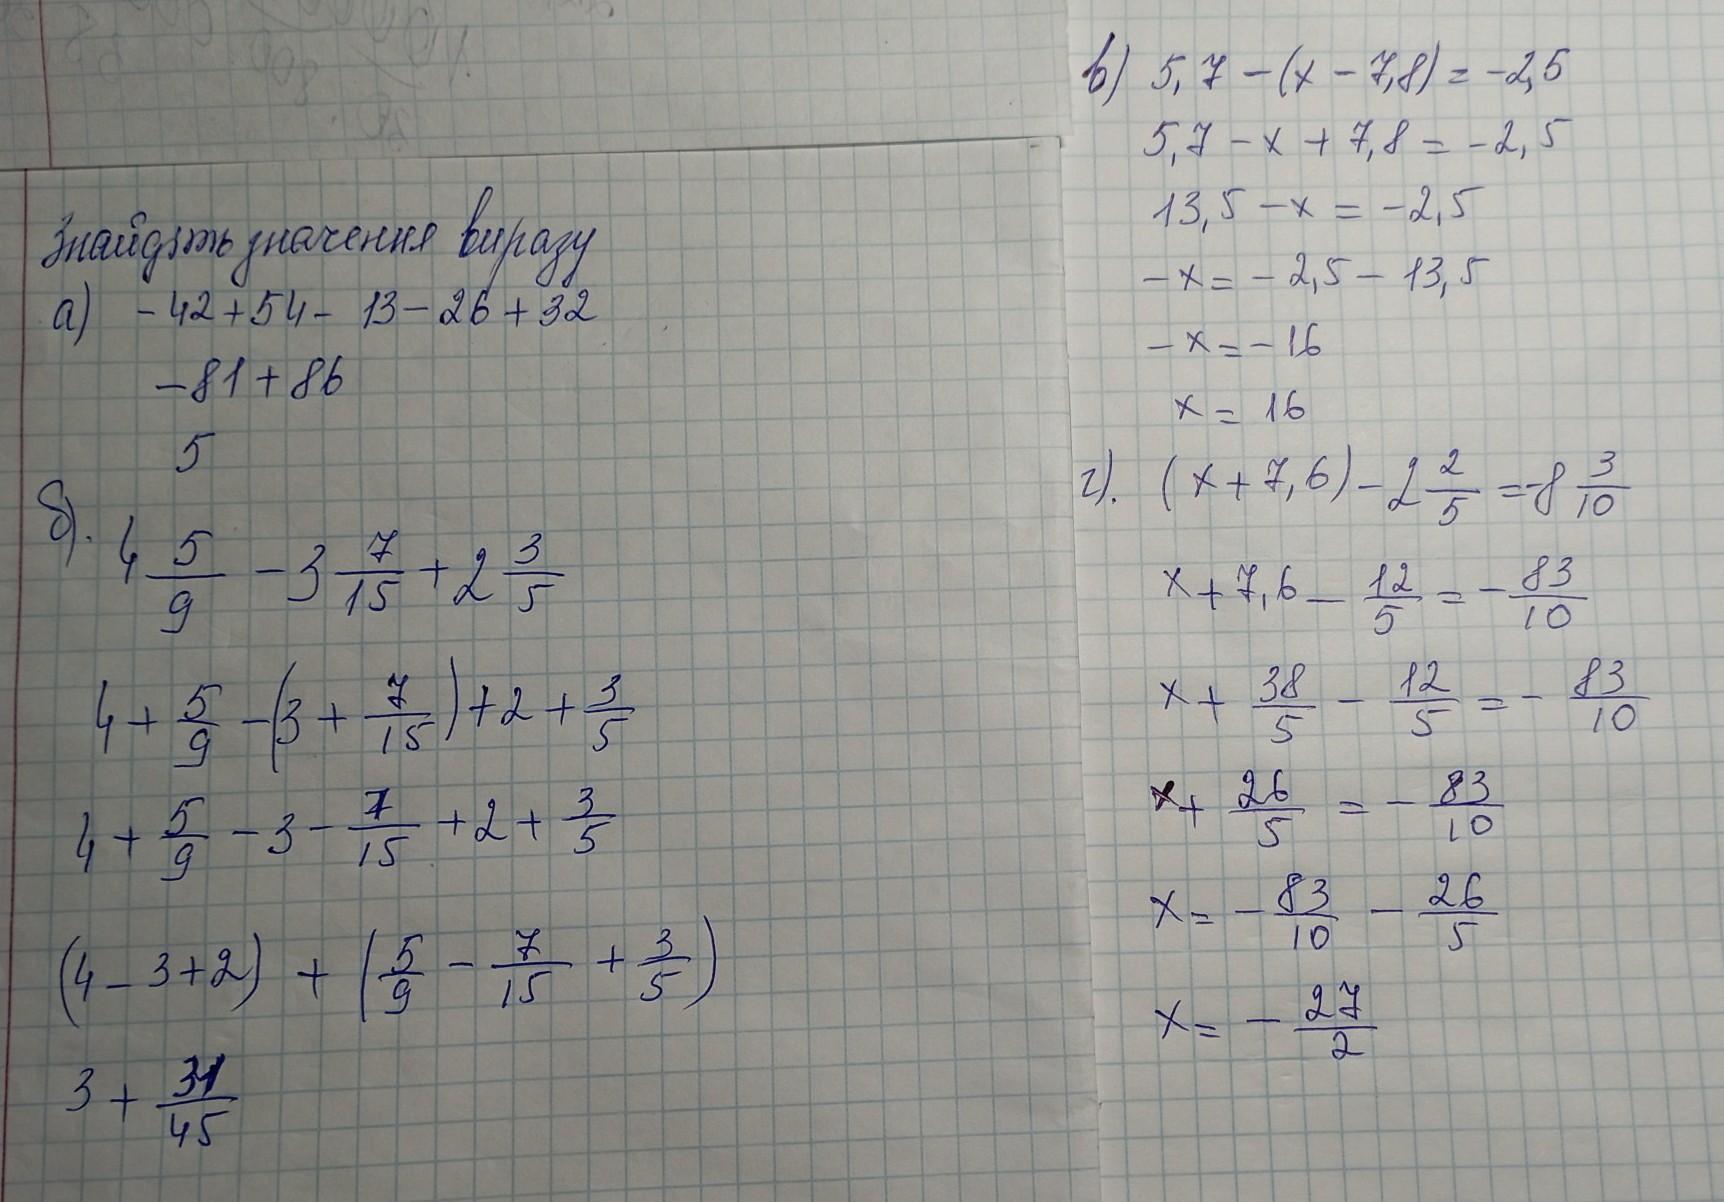 Знайдіть значення виразу
а) -42+54-13-26+32
-81+86
5
б). 4 5/9 - 3 7/15 + 2 3/5
4 + 5/9 - (3 + 7/15) + 2 + 3/5
4 + 5/9 - 3 - 7/15 + 2 + 3/5
(4 - 3 + 2) + (5/9 - 7/15 + 3/5)
3 + 31/45
в) 5,7 - (x - 7,8) = -2,5
5,7 - x + 7,8 = -2,5
13,5 - x = -2,5
-x = -2,5 - 13,5
-x = -16
x = 16
г). (x + 7,6) - 2 2/5 = -8 3/10
x + 7,6 - 12/5 = -83/10
x + 38/5 - 12/5 = -83/10
x + 26/5 = -83/10
x = -83/10 - 26/5
x = -27/2